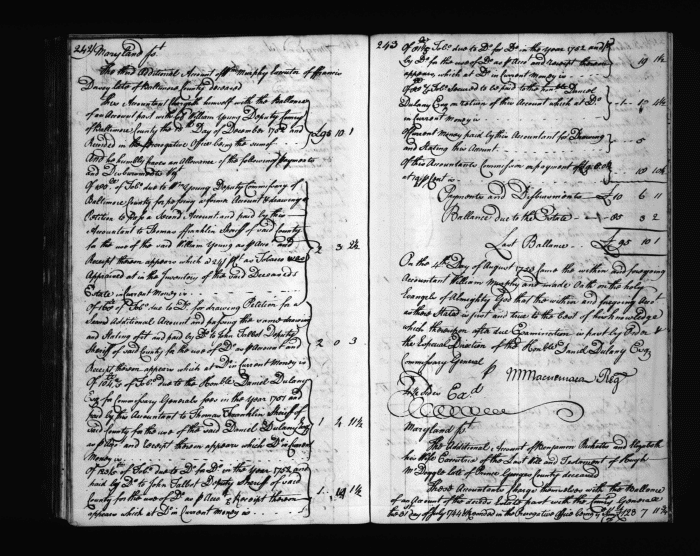 242
Maryland sst
The third Additional Account of Wm Murphy Executor of Francis
Davey late of Baltimore County deceased
This Accountant Chargeth himself with the Ballance
of an Account passed with William Young Deputy Comry
of Baltimore County the Day of December 1752 and
Recorded in the Prerogative Office being the sum of £95 10 1
And he humbly prays an Allowance of the following payments
and Disbursements Vizt
Of of Tobo due to Wm Young Deputy Commissary of
Baltimore County for passing a former Account & drawing a
Petition to pass a Second Account and paid by this
Accountant to Thomas Franklin Sheriff of said County
for the use of the said William Young as p Acco and
Receipt thereon appears which @ 24/ pt as Tobacco was
Appraised at in the Inventory of the said Deceaseds
Estate in Current Money is 2 3 2½
Of of Tobo due to Do for drawing Petition for a
Second Additional Account and passing the same drawing
and Stating of it and paid by Do to John Talbot Deputy
Sheriff of said County for the use of Do as p Account and
Receipt thereon appears which at Do in Current Money is 2 0 3
Of of Tobo due to the Honble Daniel Dulany
Esq for Commissary Generals fees in the year 1751 and
paid by this Accountant to Thomas Franklin Sheriff of
said County for the use of the said Daniel Dulany Esq
as p Acco and Receipt thereon appears which Do in Current
Money is 1 4 11½
Of of Tobo due to Do for Do in the year 1752 and
paid by Do to John Talbot Deputy Sheriff of said
County for the use of Do as p Acco & Receipt thereon
appears which at Do in Current Money is
243
Of of Tobo due to Do for Do in the year 1752 and
by Do for the use of Do as p Acco and receipt thereon
appears which at Do in Current Money is 19 1½
Of of Tobo Secured to be paid to the Honble Daniel
Dulany Esq on stating of this Account which at Do
in Current Money is
Of Current Money paid by this Accountant for Drawing
and Stating this Account 5
Of this Accountants Commission on payment of
at 10 p Cent is
Payments and Disbursements £10 6 11
Ballance due to the Estate 85 3 2
Last Ballance £95 10 1
On the 4th Day of August 1753 Came the within and foregoing
Accountant William Murphy and made Oath on the holy
Evangels of Almighty God that the within and foregoing Acct
as there Stated is just and true to the best of his knowledge
which thereupon after due Examination is past by Order &
the Especial Direction of the Honble Daniel Dulany Esq
Commissary General
p Reg
Exd
Maryland sst
The Additional Account of Benjamin and Elizabeth
his Wife Executrix of the Last Will and Testament of Hugh
late of Prince Georges County deceased
These Accountants charge themselves with the Ballance
of an Account of the said deceaseds past with the Comry General
the 31 day of July 1744 & recorded in the Prerogative Office being 123 7